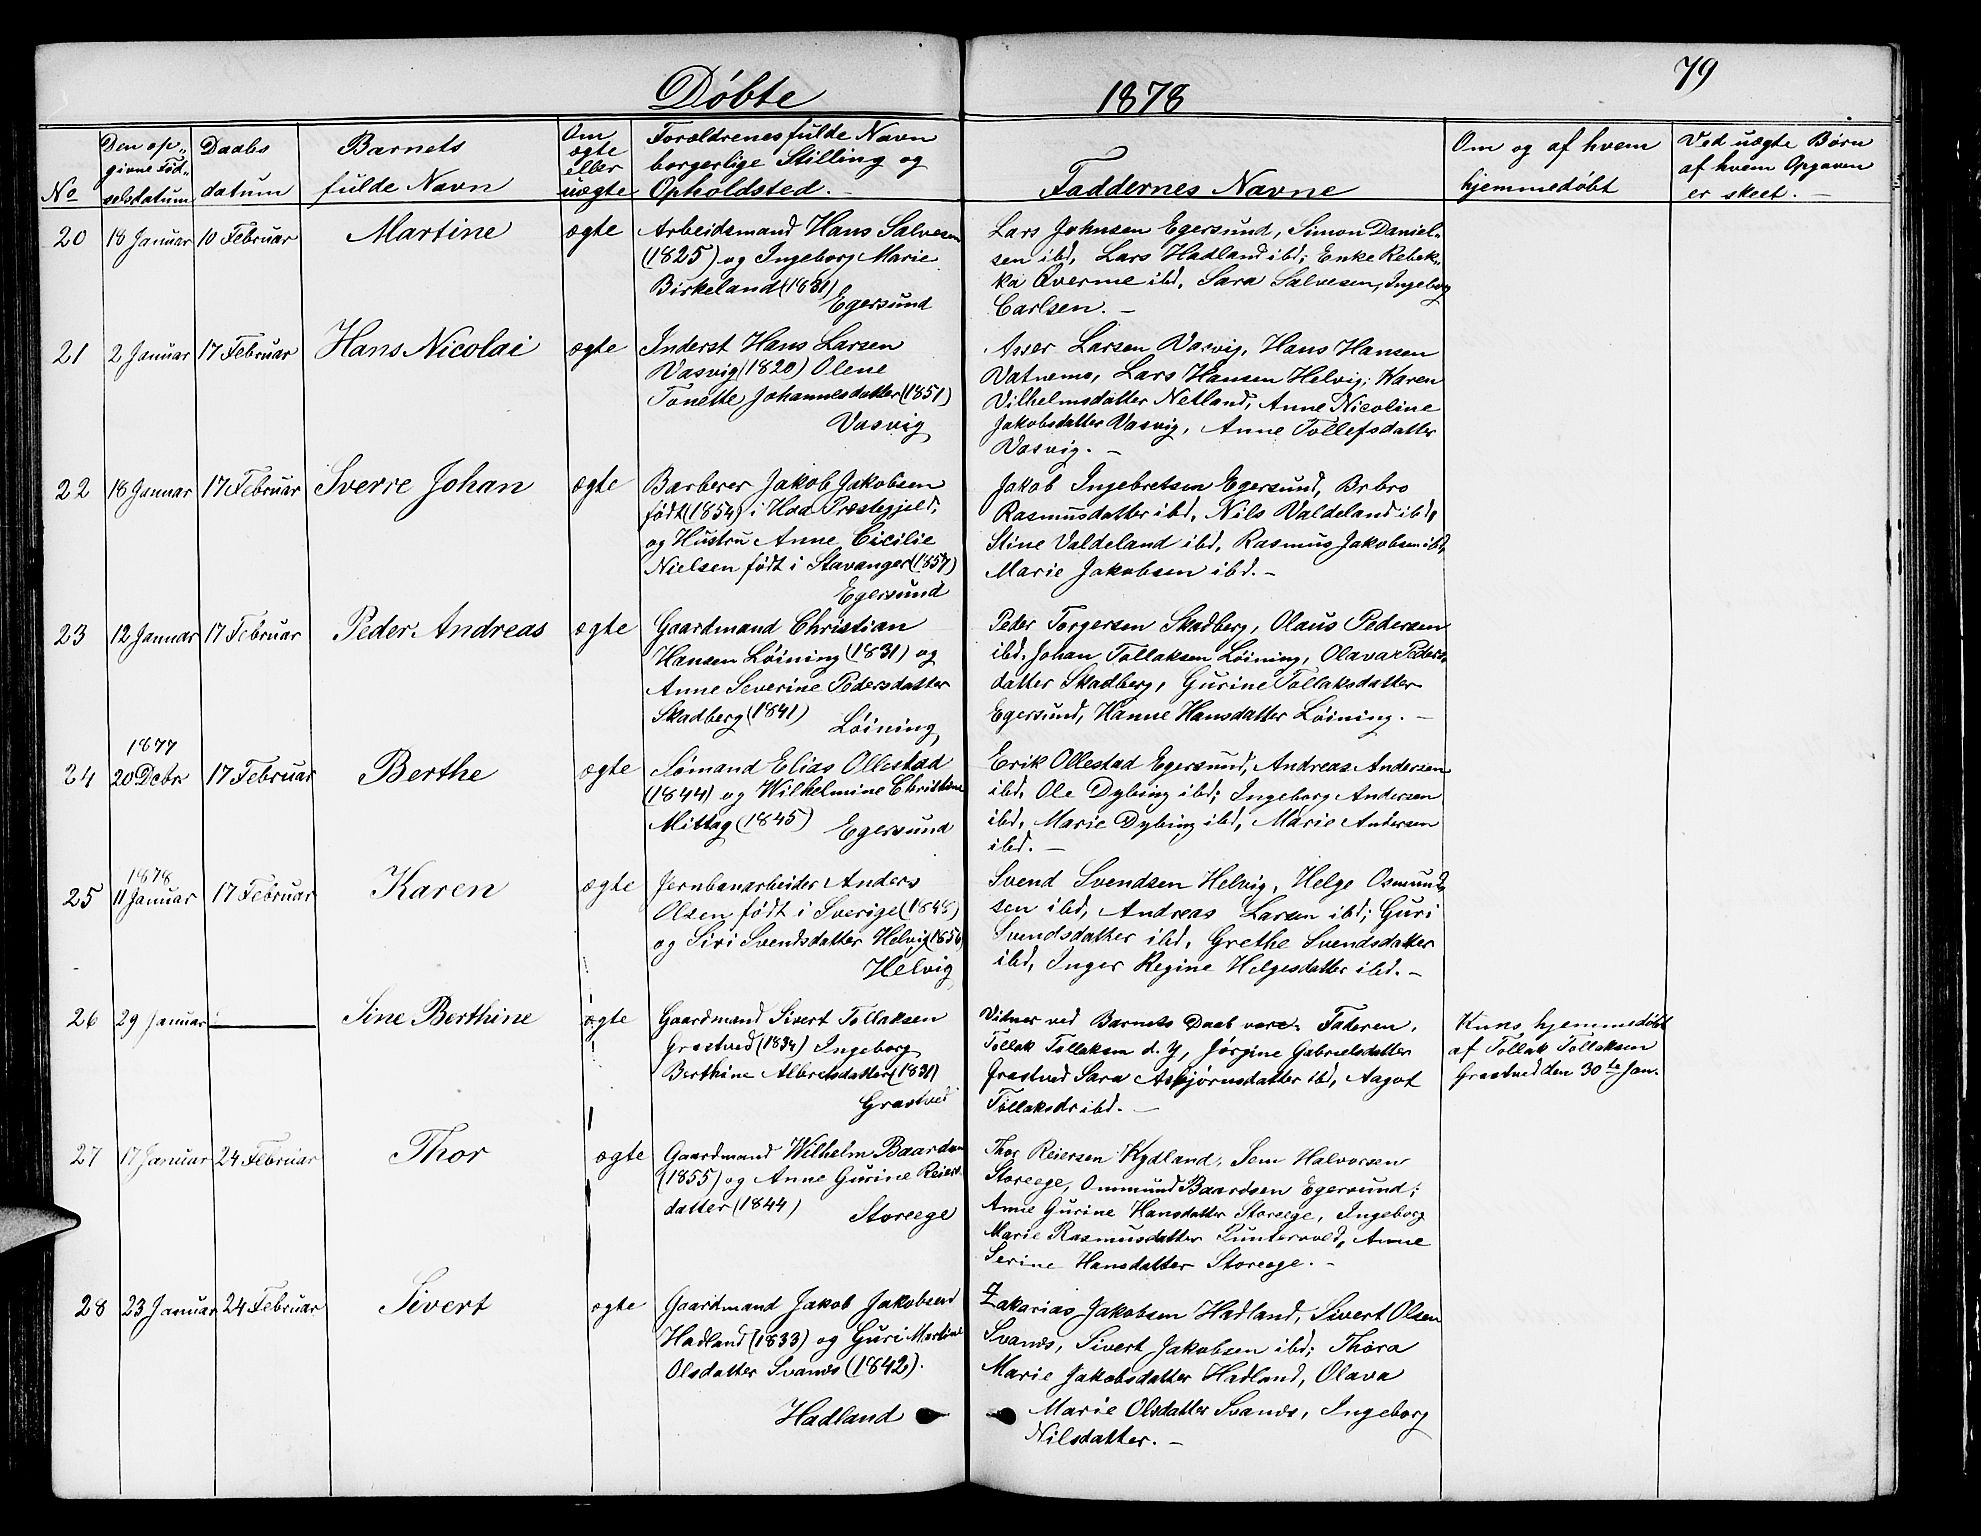 79
Døbte 1878
No
Den op-
givne Fød-
selsdatum
Daabs
datum
Barnets
fulde Navn
Om
ægte
eller
uægte
Forældrenes fulde Navn
borgerlige Stilling og
Opholdsted. -
Faddernes Navne
Om og af hvem
hjemmedøbt
Ved uægte Børn
af hvem Opgaven
er skeet. -
20 18 Januar 10 Februar Martine ægte
Arbeidsmand Hans Salvesen
(1825) og Ingeborg Marie
Birkeland (1831)
Egersund
Lars Johnsen Egersund, Simon Daniel-
sen ibd, Lars Hadland ibd; Enke Rebek-
ka Qverme ibd, Sara Salvesen, Ingeborg
Carlsen. -
21 2 Januar 17 Februar Hans Nicolai ægte
Inderst Hans Larsen
Vasvig (1820) Olene
Tonette Johannesdatter (1851)
Vasvig
Asser Larsen Vasvig, Hans Hansen
Vatnemo, Lars Hansen Helvig; Karen
Vilhelmsdatter Netland, Anne Nicoline
Jakobsdatter Vasvig, Anne Tollefsdatter
Vasvig. -
22 18 Januar 17 Februar Sverre Johan ægte
Barberer Jakob Jakobsen
født (1854) i Haa Præstegjeld,
og Hustru Anne Cicilie
Nielsen født i Stavanger (1857)
Egersund
Jakob Ingebretsen Egersund, Brbro
Rasmusdatter ibd, Nils Valdeland ibd,
Stine Valdeland ibd, Rasmus Jakobsen ibd,
Marie Jakobsen ibd. -
23 12 Januar 17 Februar Peder Andreas ægte
Gaardmand Christian
Hansen Løining (1831) og
Anne Severine Pedersdatter
Skadberg (1841)
Løining
Peder Torgersen Skadberg, Olaus Pedersen
ibd. Johan Tollaksen Løining, Olava Peders-
datter Skadberg, Gurine Tollaksdatter
Egersund, Hanne Hansdatter Løining. -
1877
24 20 Decbr 17 Februar Berthe ægte
Sømand Elias Ollestad
(1844) og Wilhelmine Christine
Mittag (1845)
Egersund
Erik Ollestad Egersund, Andreas Andersen
ibd, Ole Dybing ibd; Ingeborg Andersen
ibd, Marie Dybing ibd, Marie Andersen
ibd. -
1878
25 11 Januar 17 Februar Karen ægte
Jernbanarbeider Anders
Olsen født i Sverige (1848)
og Siri Svendsdatter Helvig (1856)
Helvig
Svend Svendsen Helvig, Helge Osmund-
sen ibd, Andreas Larsen ibd; Guri
Svendsdatter ibd, Grethe Svendsdatter
ibd, Inger Regine Helgesdatter ibd. -
26 29 Januar Sine Berthine ægte
Gaardmand Sivert Tollaksen
Grastved (1834) Ingeborg
Berthine Albretsdatter
Grastved
Vidner ved Barnets Daab vare: Faderen,
Tollak Tollaksen d. Y, Jørgine Gabrielsdatter
Grastved Sara Asbjørnsdatter ibd, Aagot
Tollaksdr ibd. -
Kuns hjemmedøbt
af Tollak Tollaksen
Grastved den 30te Jan.
27 17 Januar 24 Februar Thor ægte
Gaardmand Wilhelm Baardsen
(1855) og Anne Gurine Reiers-
datter (1844)
Storeege
Thor Reiersen Kydland, Sem Halvorsen
Storeege, Ommund Baardsen Egersund;
Anne Gurine Hansdatter Storeege, Ingeborg
Marie Rasmusdatter Puntervold, Anne
Serine Hansdatter Storeege. -
28 23 Januar 24 Februar Sivert ægte
Gaardmand Jakob Jakobsen
Hadland (1833) og Guri Martine
Olsdatter Svanæs (1842).
Hadland
Zakarias Jakobsen Hadland, Sivert Olsen
Svanæs, Sivert Jakobsen ibd; Thora
Marie Jakobsdatter Hadland, Olava
Marie Olsdatter Svanæs, Ingeborg
Nilsdatter. -